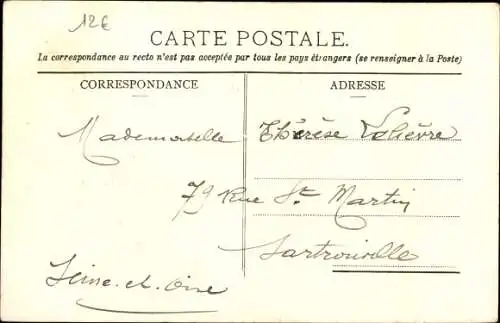 12€
CARTE POSTALE.
La correspondance au recto n'est pas acceptée par tous les pays étrangers (se renseigner à la Poste)
CORRESPONDANCE
ADRESSE
Mademoiselle Thérèse Lelièvre
79 Rue St Martin
Sartrouville
Seine-et-Oise